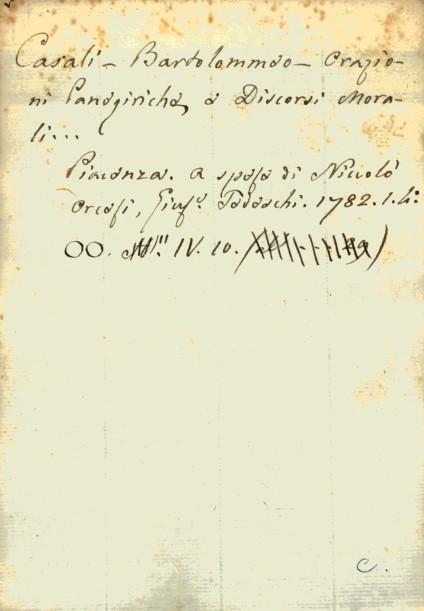 Casali - Bartolommeo - Orazio-
ni Panegiriche, e Discorsi Mora-
li...
Piacenza. a spese di Niccolò
Orcesi, Gius.e Tedeschi. 1782. 1. 4.o
OO. IV. 10.
C.